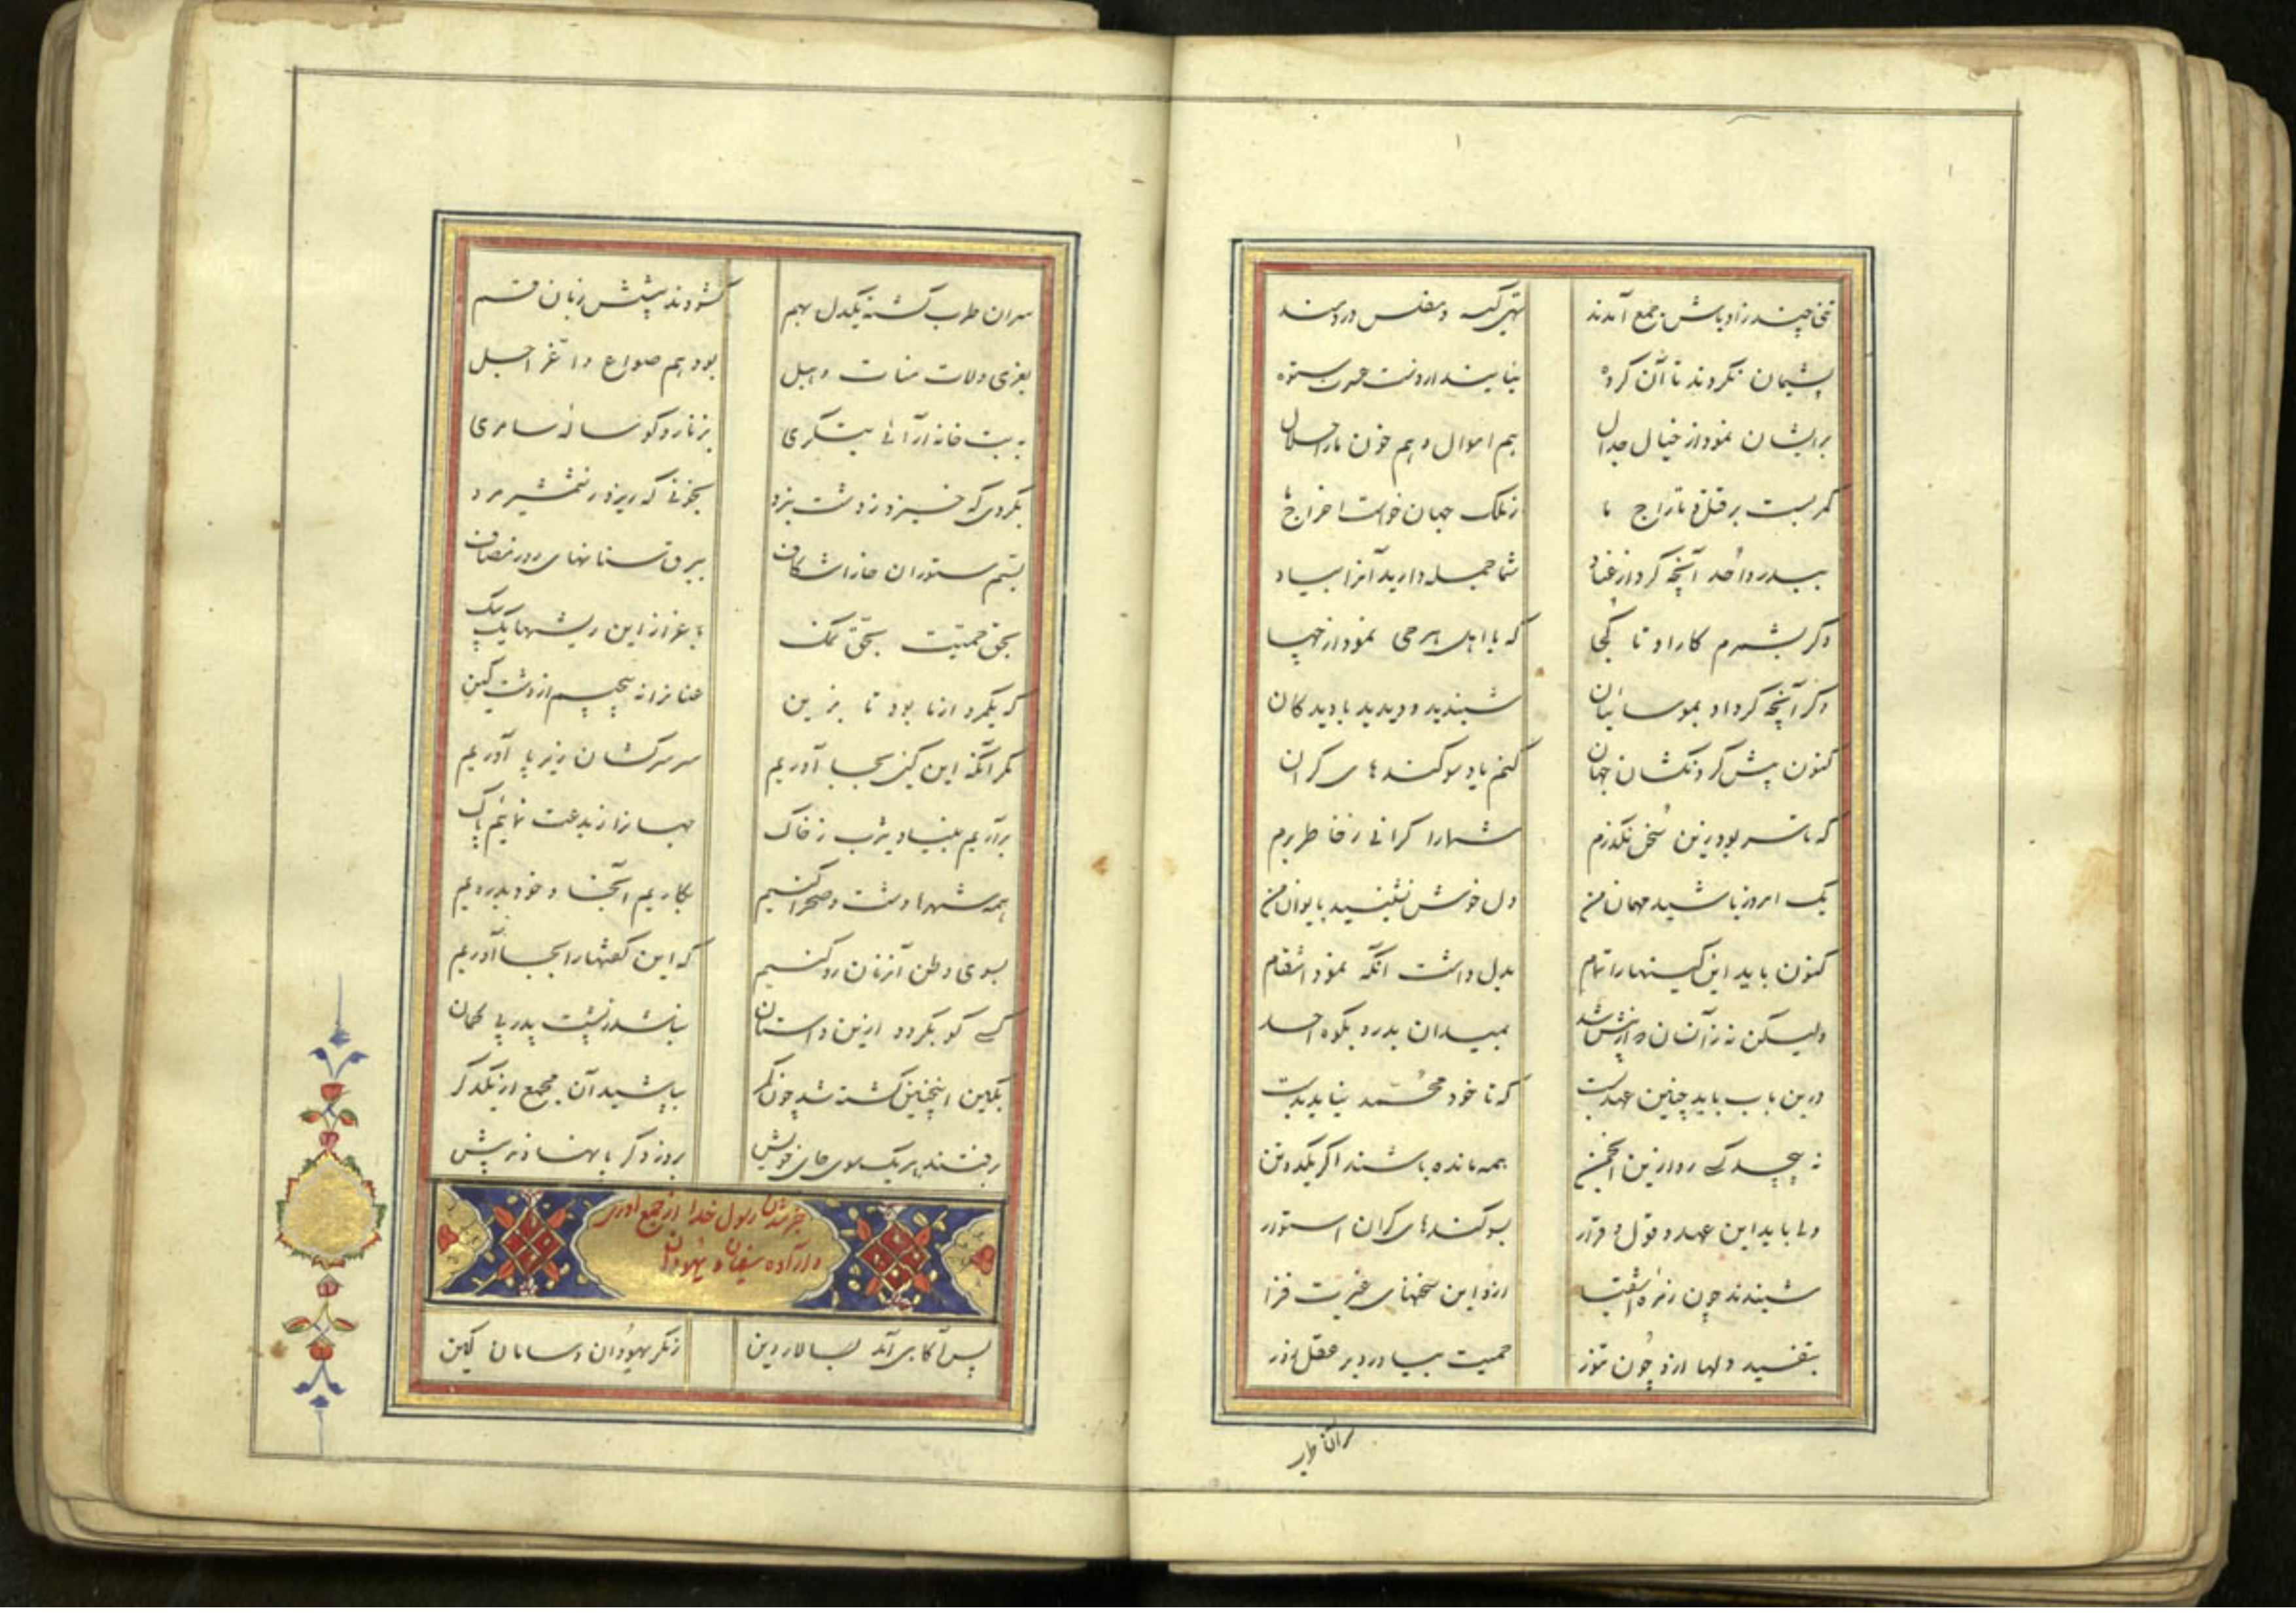 تنی چند زاوباش جمع آمدند تهی کیسه و مفلس و دردمند
پشیمان نکردند تا آن کروه نیایند از دست حرب ستوه
برایشان نمود از خیال جدال هم اموال و هم خون ما را حلال
کمر بست بر قتل و تاراج ما ز ملک جهان خواست اخراج ما
ببدر و احد آنچه کرد از عناد شما جمله دارید آنرا بیاد
دکر بشمرم کار او تا کجا که با اهل هر حی نمود از جها
دکر آنچه کرد او بموسائیان شنیدید و دیدید با دیدکان
کنون پیش کردنکشان جهان کنم یاد سوکندهای کران
که تا سر بود زین سخن نکذرم شما را کرانی ز خاطر برم
یک امروز باشید مهمان من دل خوش نشینید بایوان من
کنون باید این کینها را تمام بدل داشت آنکه نمود انتقام
ولیکن نه زآنسان که از پیش شد بمیدان بدر و بکوه احد
درین باب باید چنین عهد بست که تا خود محمد نیاید بدست
نه پیچد کسی رو ازین انجمن همه مانده باشند اکر یکدو تن
ولی باید این عهد و قول و قرار بسوکندهای کران استوار
شنیدند چون زمره اشقیا ازو این سخنهای غیرت فزا
بتفسید دلها ازو چون تموز حمیت بیاورد بر عقل زور
سران طرب
سران طرب کشته یکدل بهم کشودند پیشش زبان قسم
بعزی و لات و منات و هبل بود هم صواع و اغر اجل
به بت خانه آرائی بتکری بزنار و کوساله سامری
بکردی که خیزد ز دشت نبرد بخونی که ریزد ز شمشیر مرد
بسم ستوران خارا شکاف ببرق سنانهای روز مصاف
بحق حمیت بحق نمک بغیر از این ریشها یک بیک
که یکمرد از ما بود تا بزین عنانرا نه پیچیم از دشت کین
مکر آنکه این کین بجا آوریم سر سرکشان زیر پا آوریم
برآریم بنیاد یثرب ز خاک جهانرا ز بدعت نمائیم پاک
همه شهرها دشت و صحرا کنیم بکاریم آنجا و خود بدرویم
بسوی وطن آنزمان رو کنیم که این کفتها را بجا آوریم
کسی کو بکردد ازین داستان نباشد ز پشت پدر بی کمان
بکین اینچنین کشته شد چون کمر بپاشید آن مجمع از یکدکر
برفتند هر یک سوی جای خویش بروز دکر پا نهادند پیش
خبر شدن رسول خدا از جمع آوری
و اراده سفیان و یهودان
پس آکاهی آمد بسالار دین ز مکر یهودان و سامان کین